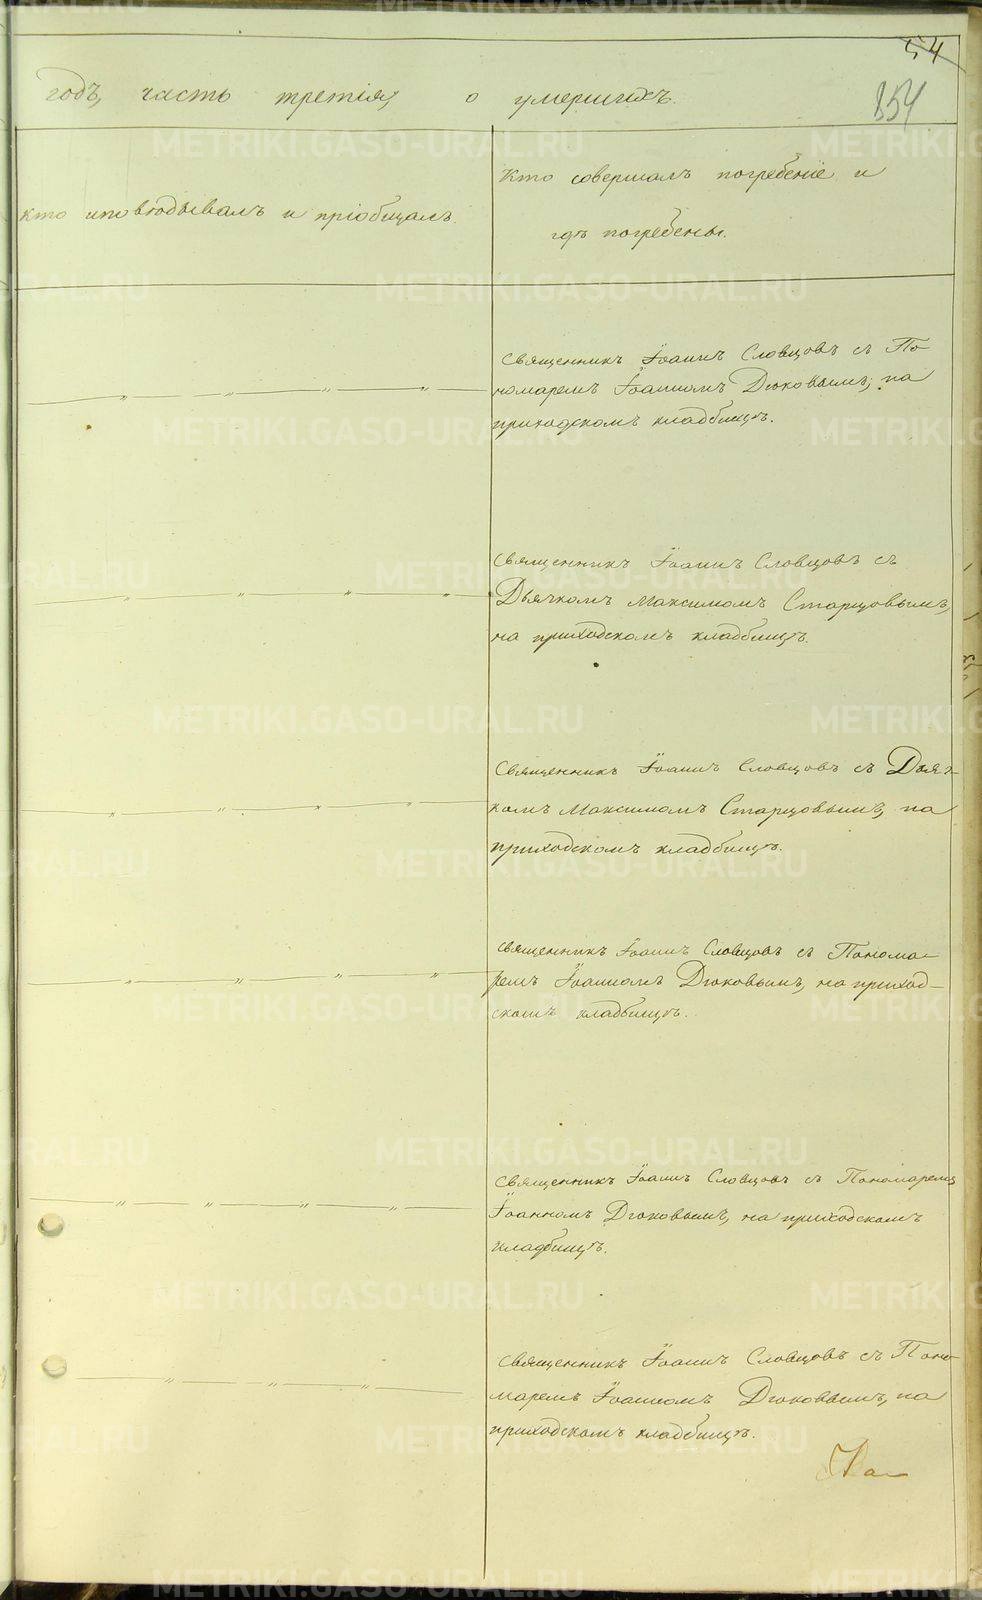 54
854
годъ, часть третія, о умершихъ.
Кто исповѣдывалъ и пріобщалъ.
Кто совершалъ погребеніе и
гдѣ погребены.
Священникъ Іоаннъ Словцовъ съ По-
номаремъ Іоанномъ Дюковымъ, на
приходскомъ кладбищѣ.
Священникъ Іоаннъ Словцовъ съ
Дьячкомъ Максимомъ Старцовымъ,
на приходскомъ кладбищѣ.
Священникъ Іоаннъ Словцовъ съ Дьяч-
комъ Максимомъ Старцовымъ, на
приходскомъ кладбищѣ.
Священникъ Іоаннъ Словцовъ съ Понома-
ремъ Іоанномъ Дюковымъ, на приход-
скомъ кладбищѣ.
Священникъ Іоаннъ Словцовъ съ Пономаремъ
Іоанномъ Дюковымъ, на приходскомъ
кладбищѣ.
Священникъ Іоаннъ Словцовъ съ Поно-
маремъ Іоанномъ Дюковымъ, на
приходскомъ кладбищѣ.
METRIKI.GASO-URAL.RU